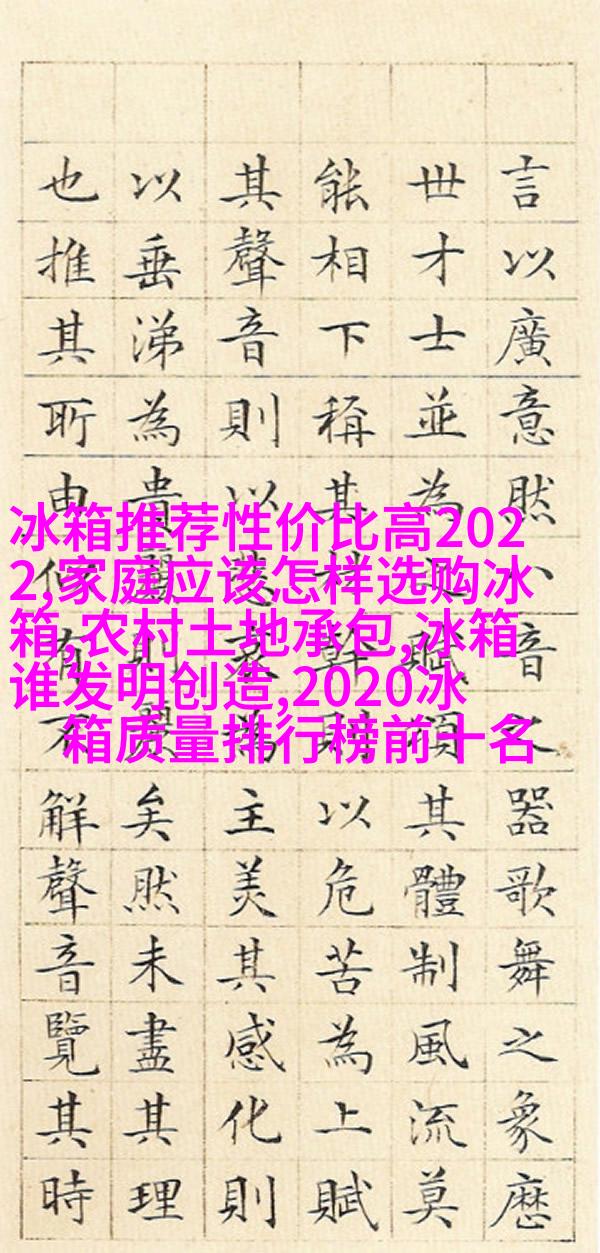 冰箱推荐性价比高202
2,家庭应该怎样选购冰
箱,农村土地承包,冰箱
谁发明创造,2020冰
箱质量排行榜前十名
言以廣意然八音之器歌舞之象歷
世才士並為之賦頌其體制風流莫
能相下稱其材幹則以危苦為上賦
其聲音則以悲哀為主美其感化則
以垂涕為貴麗則麗矣然未盡其理
也推其所由似有不解聲音覽其時